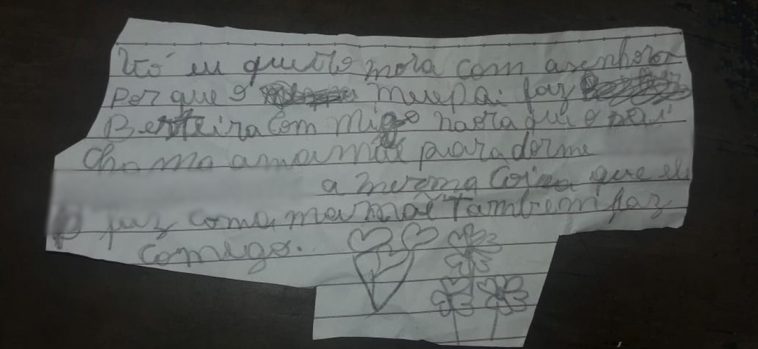 Vó eu quero mora com asenhora
Por que o meu pai faz
Besteira com migo naora que o
chama amamãe para dormi
a mesma coiza que ele
faz comamamãe tambem faz
comigo.